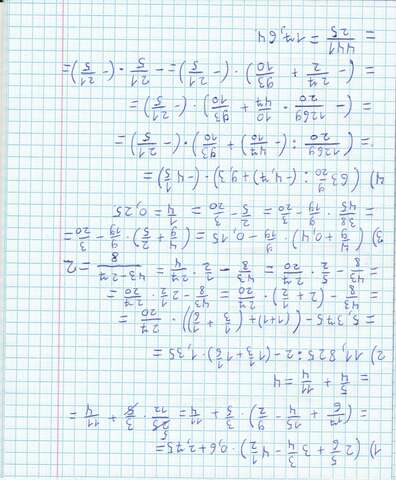 1) (2 5/6 + 3 3/4 - 4 1/2) · 0,6 + 2,75 =
= (17/6 + 15/4 - 9/2) · 3/5 + 11/4 = 25/12 · 3/5 + 11/4 =
= 5/4 + 11/4 = 4
2) 11,825 : 2 - (1 1/3 + 1 1/6) · 1,35 =
= 5,375 - ((1+1) + (1/3 + 1/6)) · 27/20 =
= 43/8 - (2 + 1/2) · 27/20 = 43/8 - 2 1/2 · 27/20 =
43/8 - 5/2 · 27/20 = 43/8 - 1/2 · 27/4 = 43-27/8 = 2
3) (4/9 + 0,4) · 9/19 - 0,15 = (4/9 + 2/5) · 9/19 - 3/20 =
= 38/45 · 9/19 - 3/20 = 2/5 - 3/20 = 1/4 = 0,25
4) (63 9/20 : (-4,7) + 9,3) · (-4 1/5) =
= (1269/20 : (-47/10) + 93/10) · (-21/5) =
= (- 1269/20 · 10/47 + 93/10) · (-21/5) =
= (- 27/2 + 93/10) · (-21/5) = - 21/5 · (-21/5) =
= 441/25 = 17,64